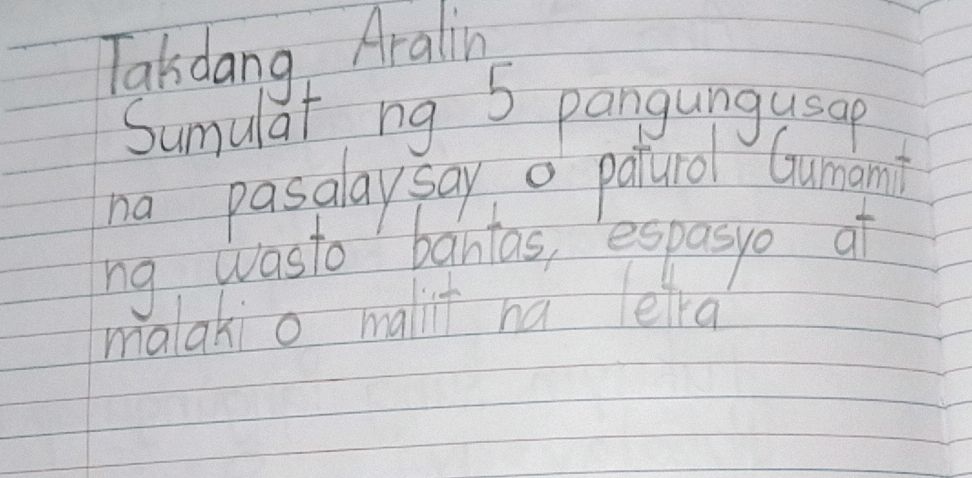 Takdang Aralin
Sumulat ng 5 pangungusap
na pasalaysay o paturol Gumamit
ng wasto bantas, espasyo at
malaki o maliit na letra